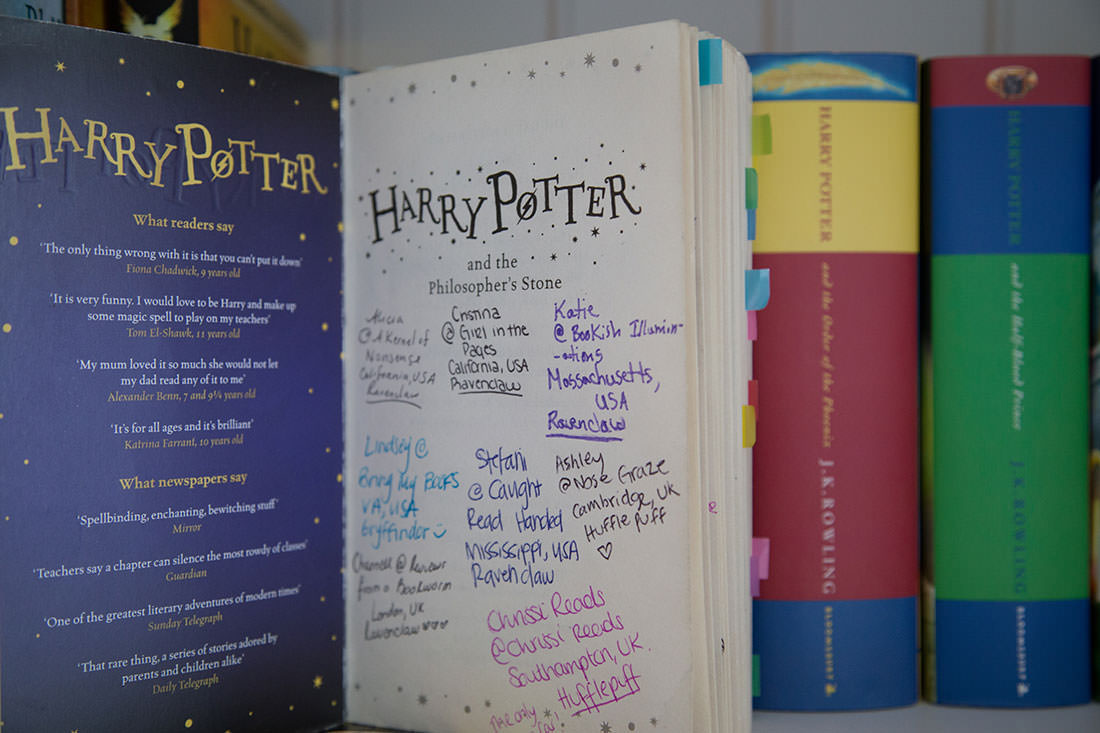 HARRY POTTER
What readers say
'The only thing wrong with it is that you can't put it down'
Fiona Chadwick, 9 years old
'It is very funny. I would love to be Harry and make up
some magic spell to play on my teachers'
Tom El-Shawk, 11 years old
'My mum loved it so much she would not let
my dad read any of it to me'
Alexander Benn, 7 and 9¼ years old
'It's for all ages and it's brilliant'
Katrina Farrant, 10 years old
What newspapers say
'Spellbinding, enchanting, bewitching stuff'
Mirror
'Teachers say a chapter can silence the most rowdy of classes'
Guardian
'One of the greatest literary adventures of modern times'
Sunday Telegraph
'That rare thing, a series of stories adored by
parents and children alike'
Daily Telegraph
HARRY POTTER
and the
Philosopher's Stone
Alicia
@ A Kernel of
Nonsense
California, USA
Ravenclaw
Cristina
@ Girl in the
Pages
California, USA
Ravenclaw
Katie
@ Bookish Illumin-
-ations
Massachusetts,
USA
Ravenclaw
Lindsey @
Bring My Books
VA, USA
Gryffindor
Stefani
@ Caught
Read Handed
Mississippi, USA
Ravenclaw
Ashley
@ Nose Graze
Cambridge, UK
Hufflepuff
@ Reviews
from a Bookworm
London, UK
Ravenclaw
Chrissi Reads
@Chrissi Reads
Southampton, UK.
Hufflepuff
The only
HARRY POTTER
and the Order of the Phoenix
J.K.ROWLING
BLOOMSBURY
HARRY POTTER
and the Half-Blood Prince
J.K.ROWLING
BLOOMSBURY